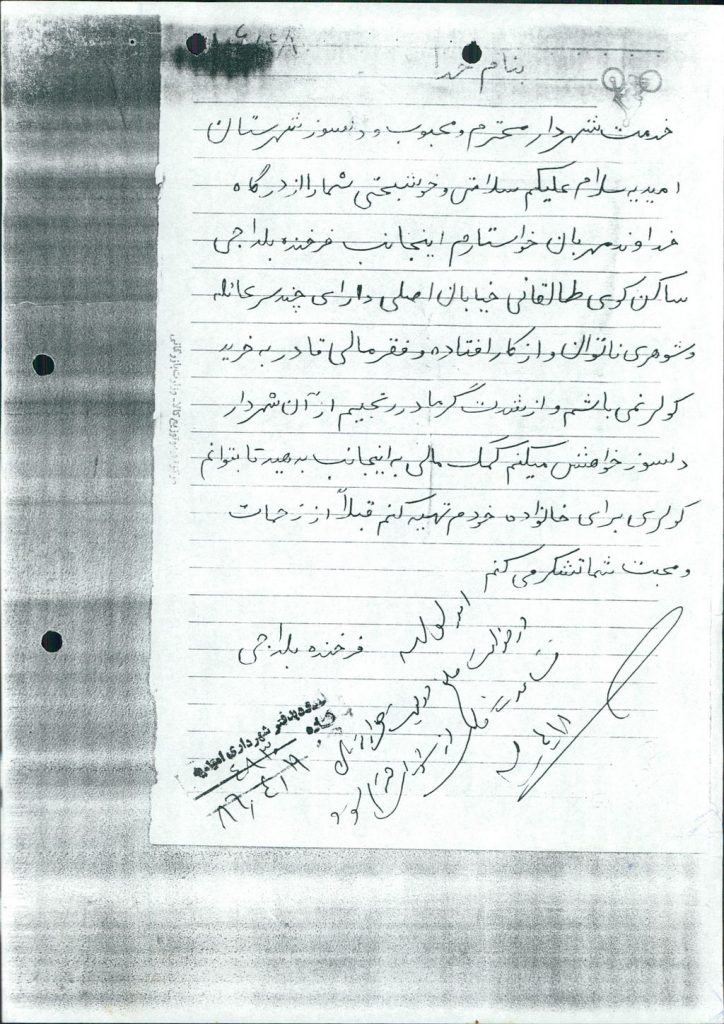 بنام خدا
خدمت شهردار محترم و محبوب و دلسوز شهرستان
امیدیه سلام علیکم سلامتی و خوشبختی شما را از درگاه
خداوند مهربان خواستارم اینجانب فرخنده بلداجی
ساکن کوی طالقانی خیابان اصلی دارای چند سر عائله
و شوهری ناتوان و از کار افتاده و فقر مالی قادر به خرید
کولر نمی باشم و از شدت گرما در رنجیم از آن شهردار
دلسوز خواهش میکنم کمک مالی به اینجانب بدهید تا بتوانم
کولری برای خانواده خودم تهیه کنم قبلاً از زحمات
و محبت شما تشکر می کنم
فرخنده بلداجی
دفتر شهرداری امیدیه
شماره ٤٨٣
٨٦/٤/١٩